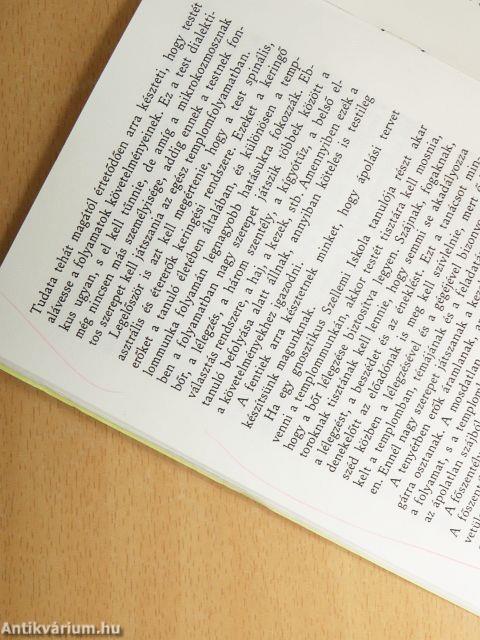 Tudata tehát magától értetődően arra készteti, hogy testét
alávesse a folyamatok követelményeinek. Ez a test dialekti-
kus ugyan, s el kell tűnnie, de amíg a mikrokozmosznak
még nincsen más személyisége, addig ennek a testnek fon-
tos szerepet kell játszania az egész templomfolyamatban.
Legelőször is azt kell megértenie, hogy a test spinális,
asztrális és étererők keringési rendszere. Ezeket a keringő
erőket a tanuló életében általában, és különösen a temp-
lommunka folyamán legnagyobb hatásukra fokozzák. Eb-
ben a folyamatban nagy szerepet játszik többek között a
bőr, a lélegzés, a három szentély, a kígyótűz, a belső el-
választás rendszere, a haj, a kezek, stb. Amennyiben ezek a
tanuló befolyása alatt állnak, annyiban köteles is testileg
a követelményekhez igazodni.
A fentiek arra késztetnek minket, hogy ápolási tervet
készítsünk magunknak.
Ha egy gnosztikus Szellemi Iskola tanulója részt akar
venni a templommunkán, akkor testét tisztára kell mosnia,
hogy a bőr lélegzése biztosítva legyen. Szájnak, fogaknak,
toroknak tisztának kell lennie, hogy semmi se akadályozza
a lélegzést, a beszédet és az éneklést. Ezt a tanácsot min-
denekelőtt az előadónak is meg kell szívlelnie, mert
széd közben a lélegzésével és a gégéjével bizonyos
kelt a templomban, témájának és a feladatá
en. Ennél nagy szerepet játszanak a kez
A tenyérben erők áramlanak, a
gárra osztanak. A mosdatlan
a folyamat, s a templomb
az ápolatlan szájból
A főszentély
A főszent
vetül
Antikvárium.hu